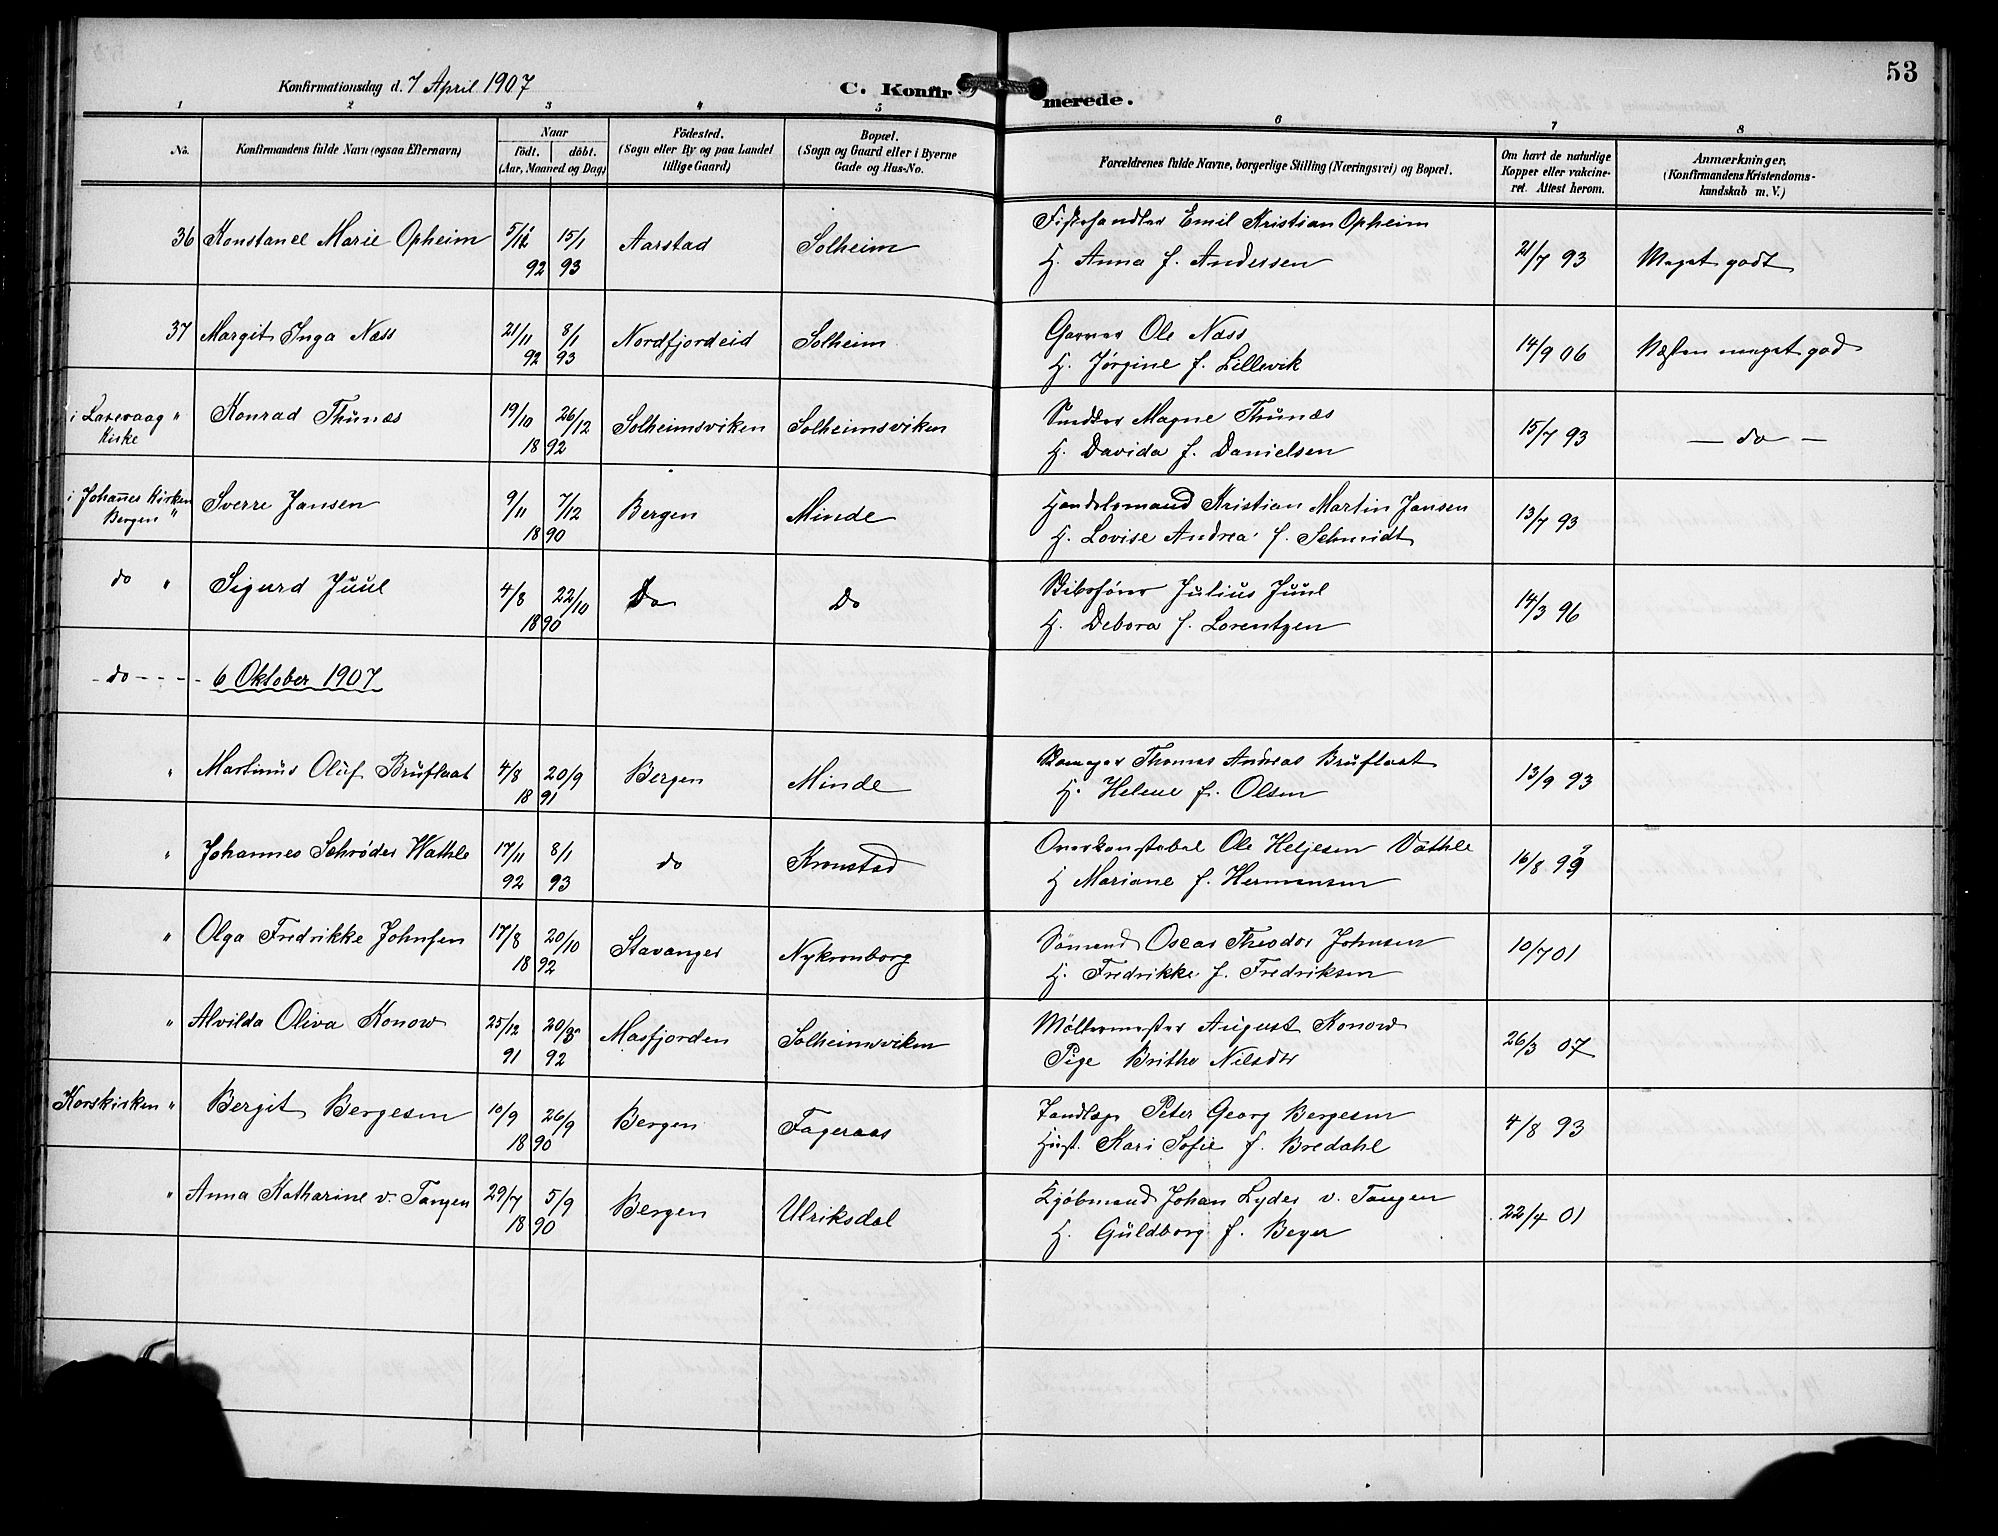 53
Konfirmationsdag d. 7 April 1907
C. Konfirmerede.
1 2 3 4 5 6 7 8
No.
Konfirmandens fulde Navn (ogsaa Efternavn)
Naar
födt. döbt.
(Aar, Maaned og Dag)
Födested.
(Sogn eller By og paa Landet
tillige Gaard)
Bopæl.
(Sogn og Gaard eller i Byerne
Gade og Hus-No.
Forældrenes fulde Navne, borgerlige Stilling (Næringsvei) og Bopæl.
Om havt de naturlige
Kopper eller vakcine-
ret. Attest herom.
Anmærkninger.
(Konfirmandens Kristendoms-
kundskab m. V.)
36 Konstance Marie Opheim 5/12 92 15/1 93 Aarstad Solheim
Fiskehandler Emil Kristian Opheim
H. Anna f. Andersen 21/7 93 Meget godt
37 Margit Inga Næss 21/11 92 8/1 93 Nordfjordeid Solheim
Garver Ole Næss
H. Jørgine f. Lillevik 14/9 06 Næsten meget god
i Laxevaag Kirke " Konrad Thunæs 19/10 26/12 1892 Solheimsviken Solheimsviken
Smed Magne Thunæs
H. Davida f. Danielsen 15/7 93 — do —
i Johanes Kirken Bergen " Sverre Jansen 9/11 7/12 1890 Bergen Minde
Handelsmand Kristian Martin Jansen
H. Lovise Andrea f. Schmidt 13/7 93
do " Sigurd Juul 4/8 22/10 1890 Do Do
Julius Juul
H. Debora f. Lorentzen 14/3 96
- do - - - - 6 Oktober 1907
" Martinus Oluf Bruflaat 4/8 20/9 1891 Bergen Minde
Thomas Andreas Bruflaat
H. Helene f. Olsen 13/9 93
" Johannes Schrøder Wathle 17/11 92 8/1 93 do Kronstad
Overkonstabel Ole Heljesen Vathle
H Mariane f. Hermansen 16/8 99
" Olga Fredrikke Johnsen 17/8 20/10 1892 Stavanger Nykronborg
Sömand Oscar Theodor Johnsen
H. Fredrikke f. Fredriksen 10/7 01
" Alvilda Oliva Konow 25/12 91 20/3 92 Masfjorden Solheimsviken
Møllermester August Konow
Pige Britha Nilsdtr 26/3 07
Korskirken " Bergit Bergesen 10/9 26/9 1890 Bergen Fageraas
Tandlæge Peter Georg Bergesen
Hust. Kari Sofie f. Bredahl 4/8 93
" Anna Katharine v. Tangen 29/7 5/9 1890 Bergen Ulriksdal
Kjöbmand Johan Lyder v. Tangen
H. Guldborg f. Beyer 22/4 01